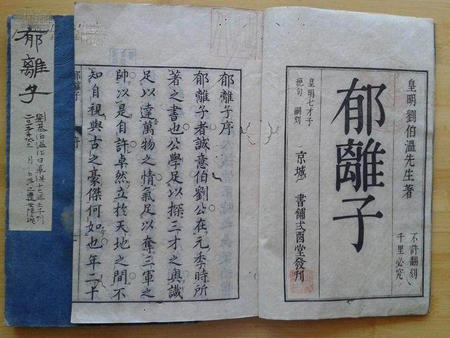 皇明劉伯溫先生著
郁離子
不許翻刻
千里必究
皇明七才子
絕句 嗣刻
京城 書鋪弍酉堂發刋
郁離子序
郁離子者誠意伯劉公在元季時所
著之書也公學足以探三才之奧識
足以達萬物之情氣足以奪三軍之
帥以是自許卓然立於天地之間不
知自視與古之豪傑何如也年二十
郁離子
郁離子